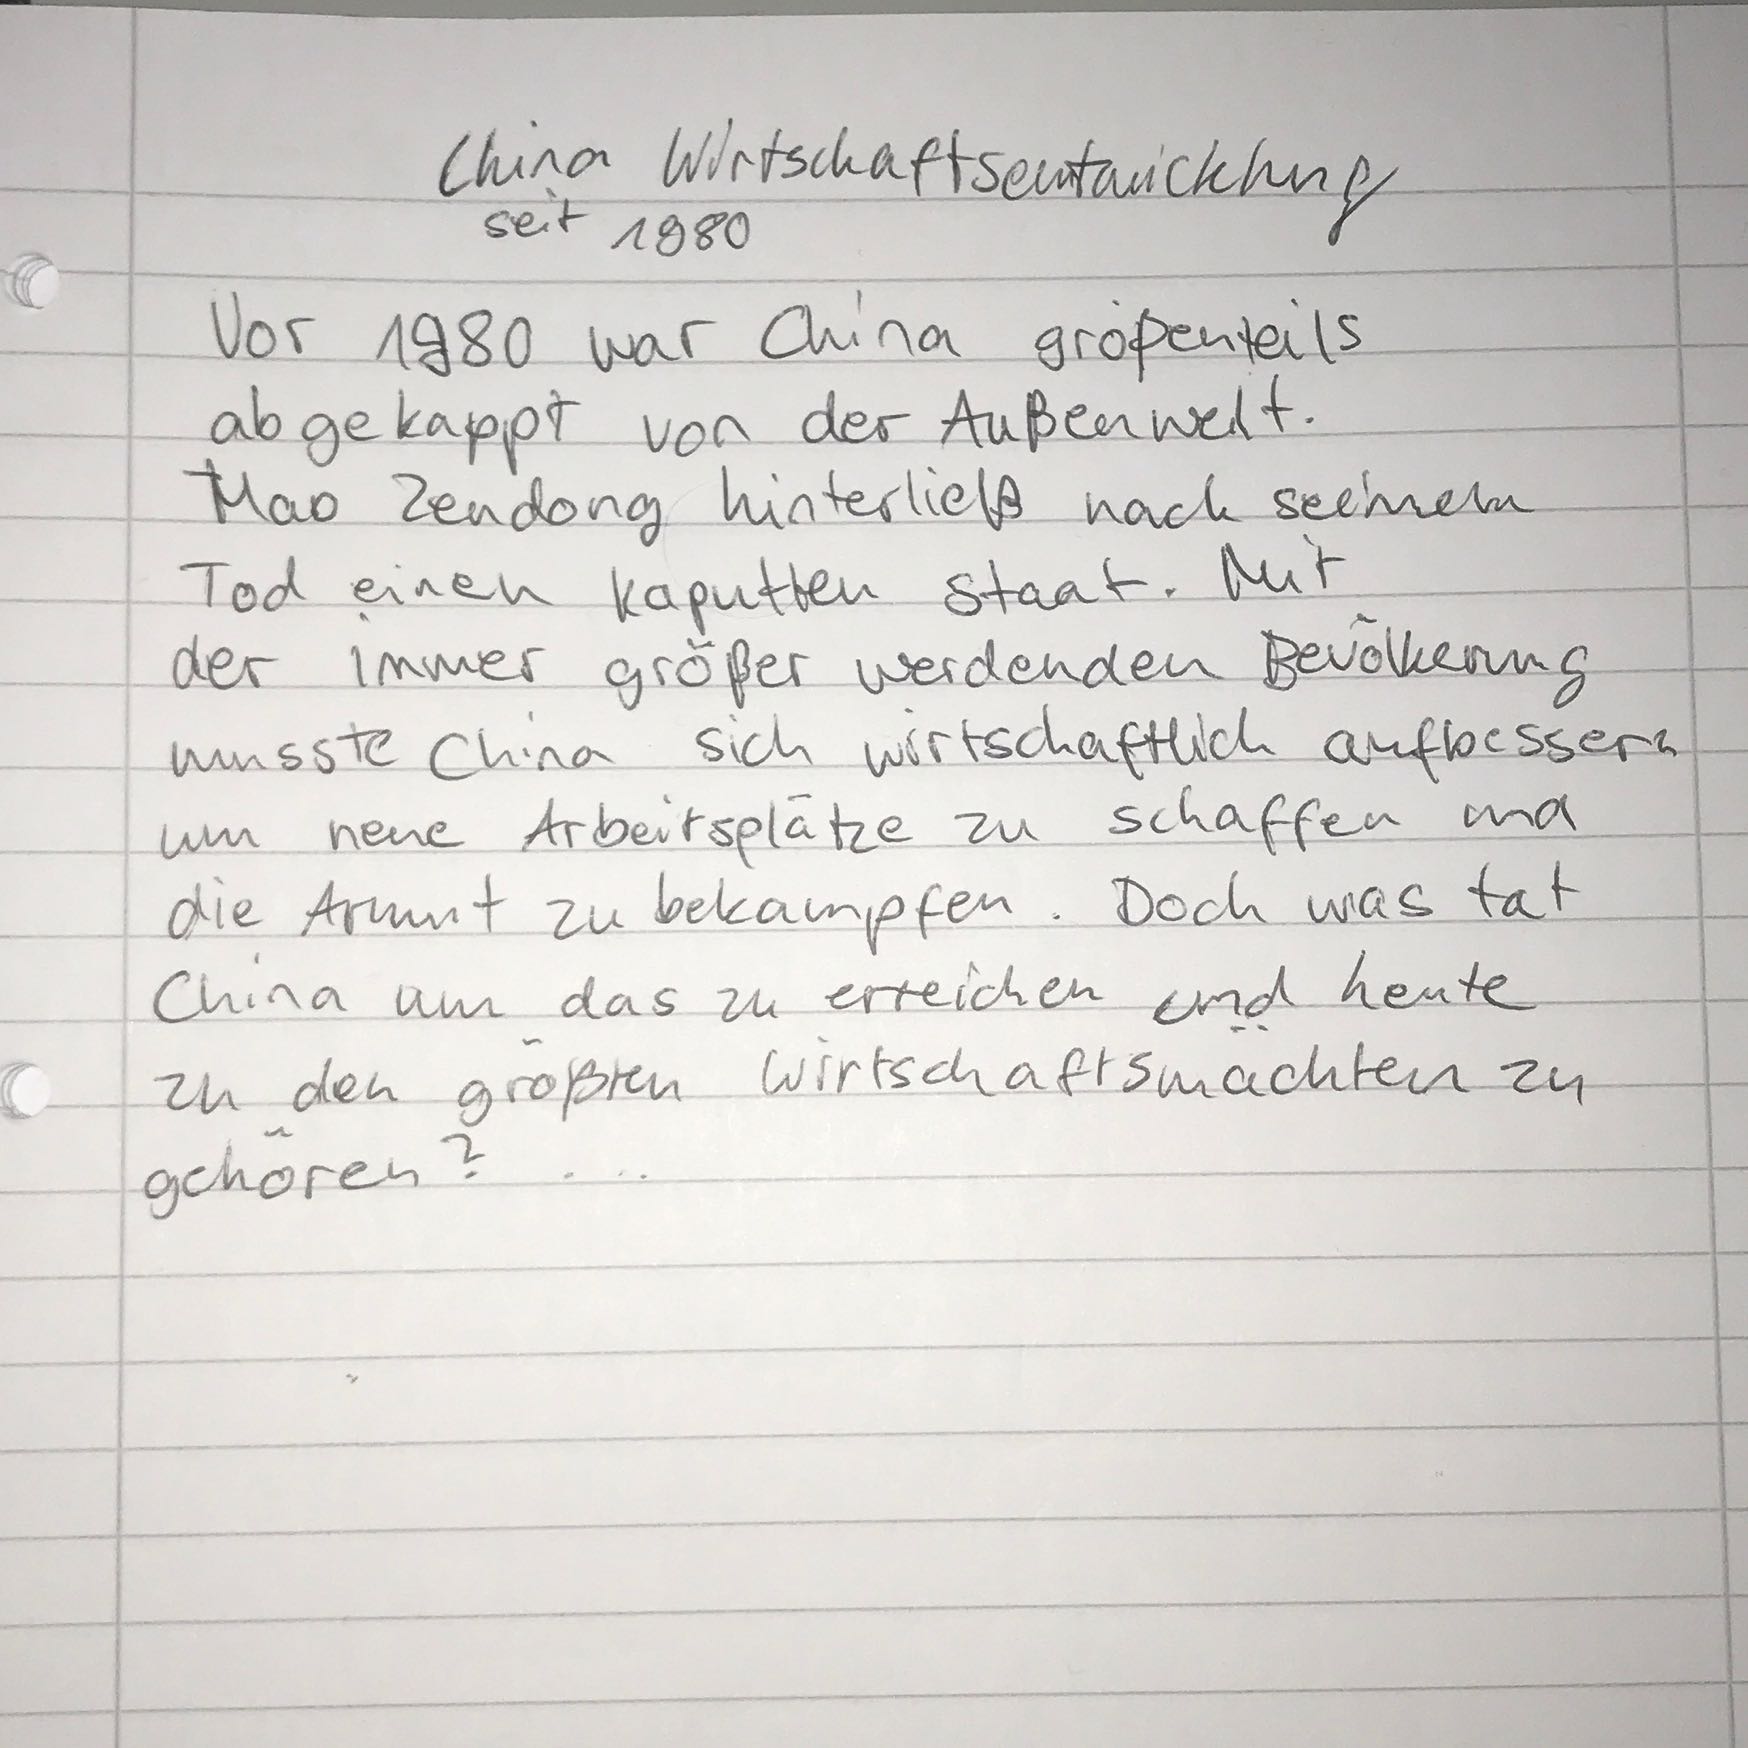 China Wirtschaftsentwicklung
seit 1980
Vor 1980 war China größenteils
abgekappt von der Außenwelt.
Mao Zendong hinterließ nach seinem
Tod einen kaputten staat. Mit
der immer größer werdenden Bevölkerung
musste China sich wirtschaftlich aufbessern
um neue Arbeitsplätze zu schaffen und
die Armut zu bekampfen. Doch was tat
China um das zu erreichen und heute
zu den größten Wirtschaftsmächten zu
gehören? ...